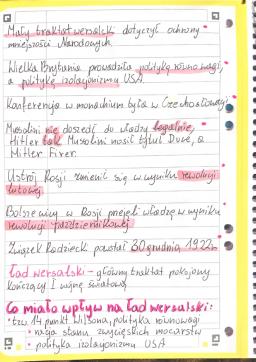 Mały traktat wersalski dotyczył ochrony
mniejszości Narodowych.
Wielka Brytania prowadziła politykę równowagi,
a politykę izolacjonizmu USA.
Konferencja w monachium była w Czechosłowacji
Musolini nie doszedł do władzy legalnie,
Hitler tak Musolini nosił tytuł Duce, a
Hitler Firer.
Ustrój Rosji zmienił się w wyniku rewolucji
lutowej
Bolszewicy w Rosji przejęli władzę w wyniku
rewolucji październikowej
Związek Radziecki powstał 30 grudnia 1922r
Ład wersalski - główny traktat pokojowy
kończący I wojnę światową
Co miało wpływ na ład wersalski:
• tzw. 14 punkt Wilsona, polityka równowagi
• racja stanu zwycięskich mocarstw
• polityka izolacjonizmu USA